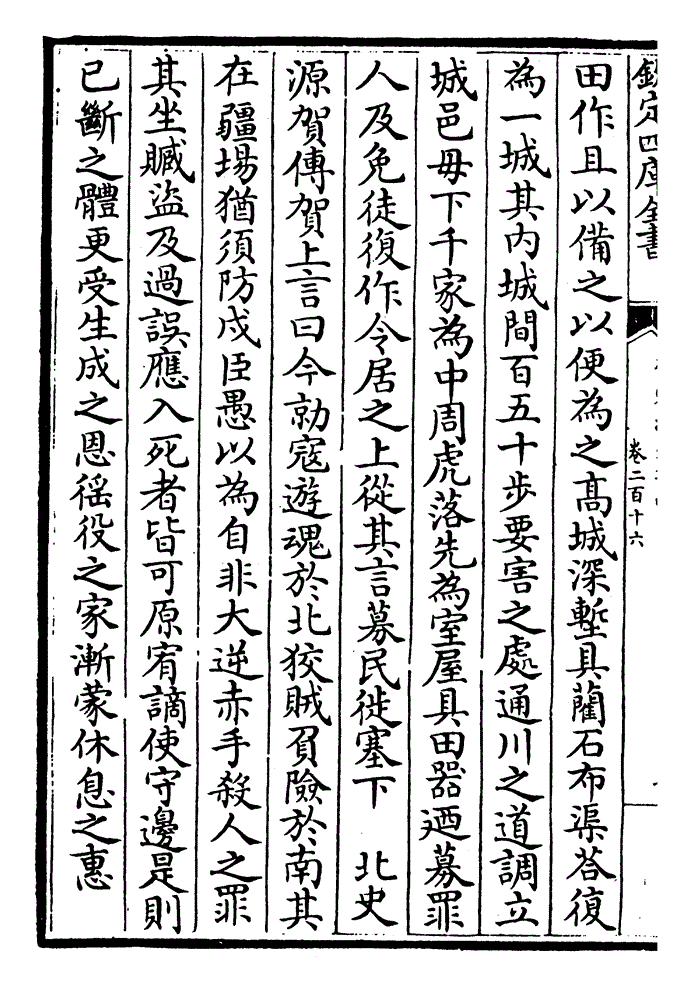 欽定四庫全書
卷二百十六
田作且以備之以便為之髙城深塹具藺石布渠荅復
為一城其内城間百五十步要害之處通川之道調立
城邑毋下千家為中周虎落先為室屋具田器廼募罪
人及免徒復作令居之上從其言募民徙塞下　北史
源賀傳賀上言曰今勍寇遊魂於北狡賊負險於南其
在疆場猶須防戍臣愚以為自非大逆赤手殺人之罪
其坐贓盜及過誤應入死者皆可原宥謫使守邊是則
已斷之體更受生成之恩徭役之家漸蒙休息之惠